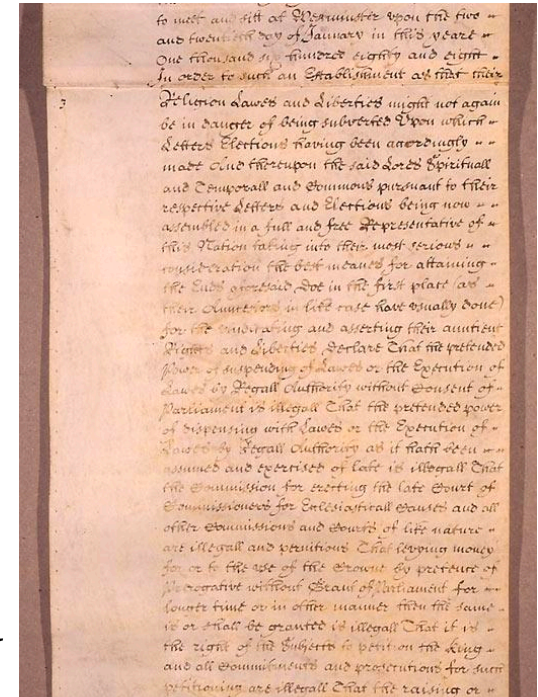 to meet and sitt at Westminster upon the two
and twentieth day of January in this yeare
One thousand six hundred eighty and eight
In order to such an Establishment as that their
3
Religion Lawes and Liberties might not again
be in danger of being subverted Upon which
Letters Elections having been accordingly
made And thereupon the said Lords Spirituall
and Temporall and Commons pursuant to their
respective Letters and Elections being now
assembled in a full and free Representative of
this Nation taking into their most serious
consideration the best meanes for attaining
the Ends aforesaid Doe in the first place (as
their Auncestors in like case have usually done)
for the vindicating and asserting their auntient
Rights and Liberties, Declare That the pretended
Power of suspending of Lawes or the Execution of
Lawes by Regall Authority without Consent of
Parliament is illegall That the pretended power
of dispensing with Lawes or the Execution of
Lawes by Regall Authority as it hath been
assumed and exercised of late is illegall That
the Commission for erecting the late Court of
Commissioners for Ecclesiasticall Causes and all
other Commissions and Courts of like nature
are illegall and pernitious That levying money
for or to the use of the Crowne by pretence of
Prerogative without Grant of Parliament for
longer time or in other manner then the same
is or shall be granted is illegall That it is
the right of the Subjects to petition the King
and all Commitments and prosecutions for such
petitioning are illegall That the raising or